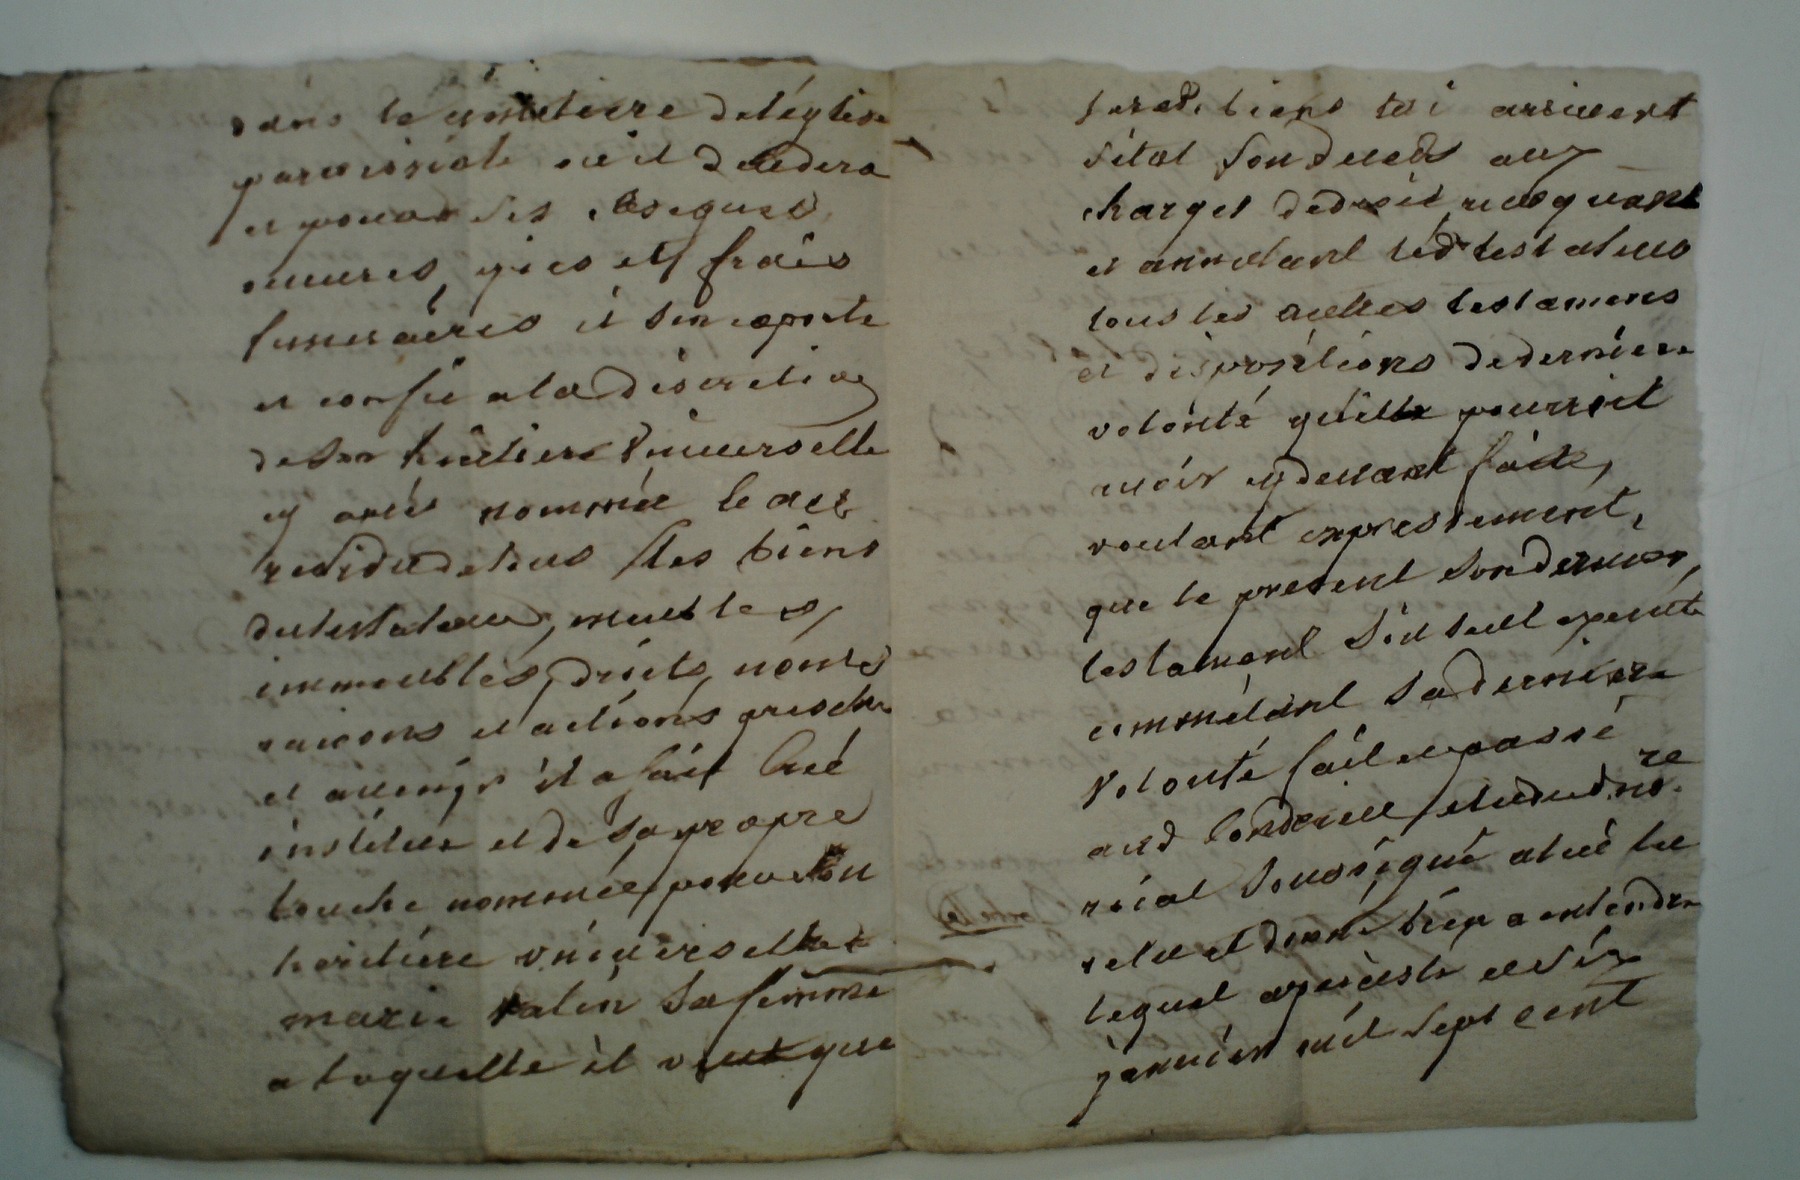 dans le cimetiere de léglise
paroissiale ou il decedera
et pour ses obseques
œuures pies et frais
funeraires il sen raporte
et confie a la discretion
de son heritiere vniuerselle
cy après nommée le del
residu de tous ses biens
du testateur, meubles,
immeubles, droits, noms
raisons et actions presens
et auenir il a fait creé
institue et de sa propre
bouche nommée pour son
heritiere vniuerselle
marie sa femme
a laquelle il veut que
biens lui arriuent
sitot son deces aux
charges de droit, reuoquant
et annulant led testateur
tous les autres testamens
et dispositions de derniere
volonté quil pourroit
auoir cy deuant faite,
voulant expressement,
que le present son dernier
testament soit seul exécuté
comme étant sa derniere
volonté fait et passé
aud et aud no.re
roial soussigné a leu
releu et donné bien a entendre
lequel apresté a six
januier mil sept cent